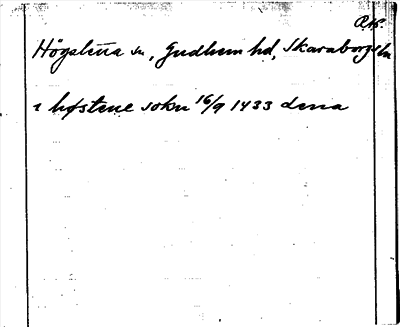 Högstena sn, Gudhem hd, Skaraborgs län
i høstene sokn 16/9 1433 dena